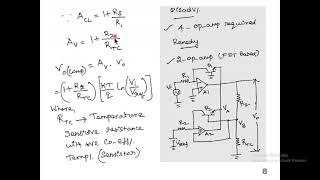 ∵ A_CL = 1 + R_f / R_1
A_V = 1 + R_2 / R_TC
V_o(comp) = A_V · V_o
= (1 + R_2 / R_TC) [KT/q ln(V_i / V_ref)]
Where,
R_TC → Temperature
sensitive resistance
with +ve co-eff.
Temp. (Sensistor)
Disadv.
✓ 4-op-amp required
Remedy
✓ 2-op-amp (FDT Based)
A1
A2
V_A
V_B
R_2
R_TC
V_ref
8